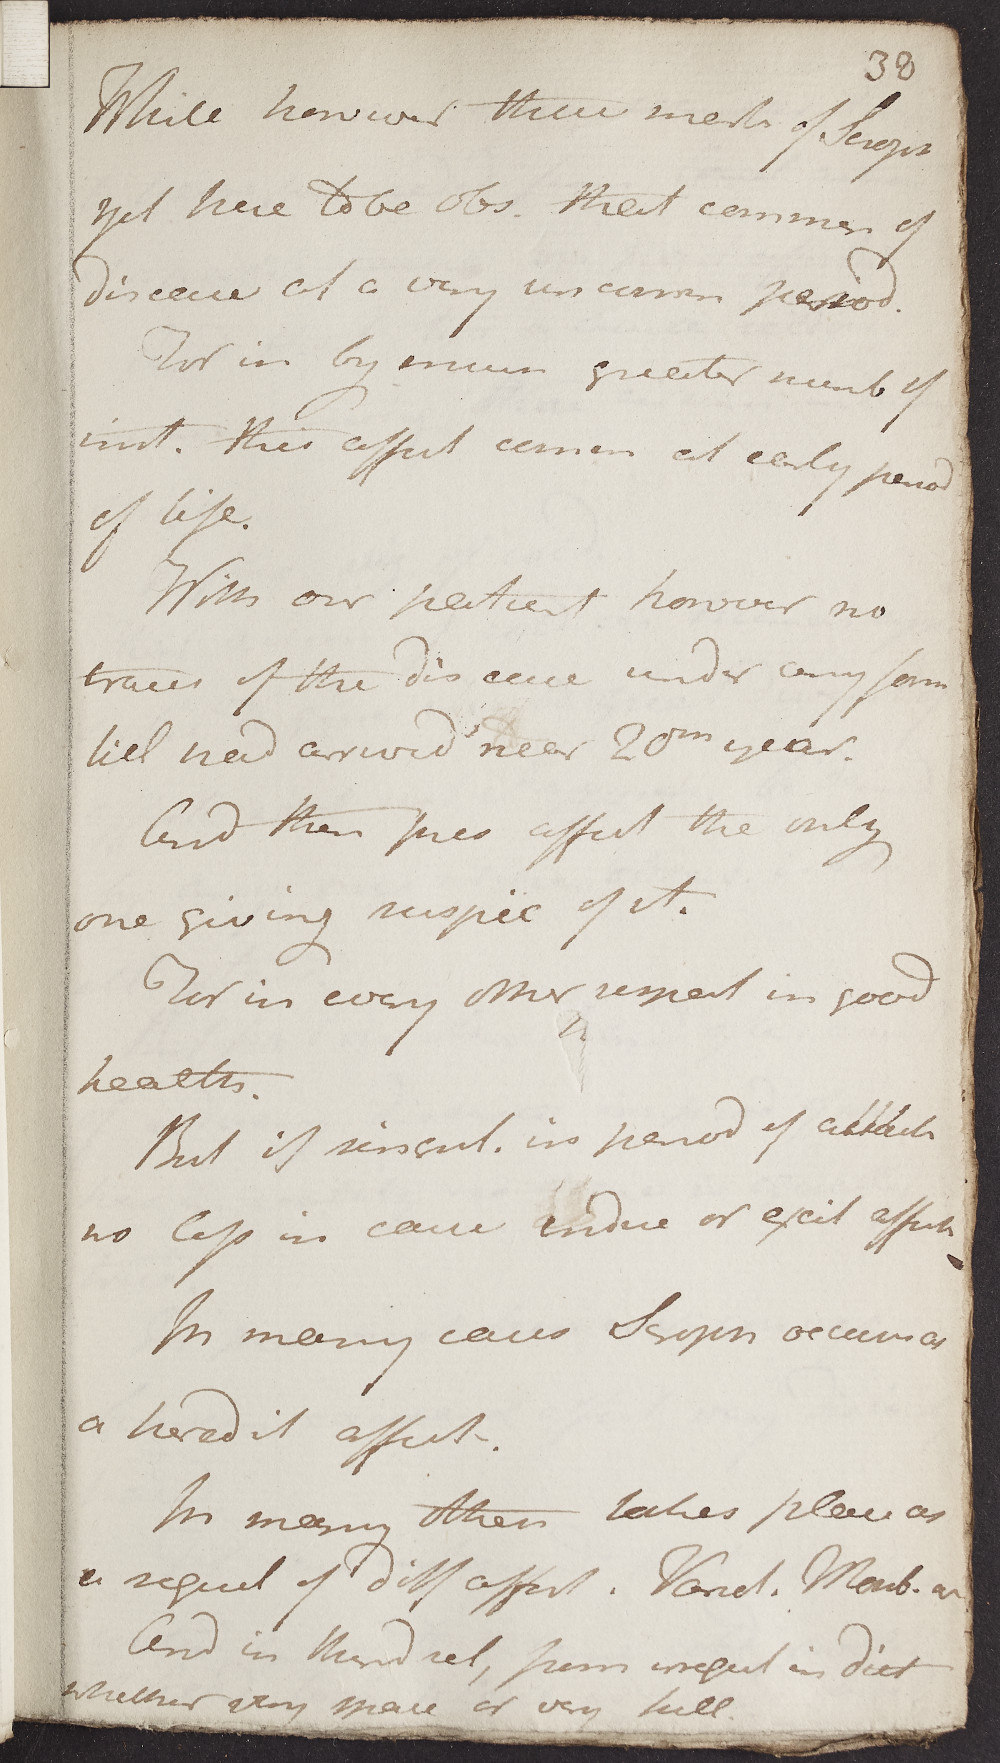 38
While however these marks of Scroph
yet here to be obs. that commen of
disease at a very uncommon period.
For in by much greater numb of
inst. this affect commen at early period
of life.
With our patient however no
traces of the disease under any form
till had arrived near 20th year.
And then pres affect the only
one giving suspic of it.
For in every other respect in good
health.
But if singul. in period of attack
no less in cause induc or excit affect
In many cases Scroph occurs as
a heredit affect.
In many others takes place as
a sequel of diff affect. Variol. Morb.
And in third set, from irregul in diet
whether very spare or very full.